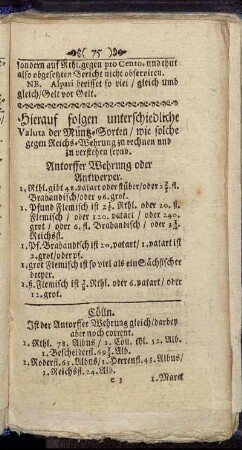 ( 75 )
sondern auf Rthl. gegen pro Cento, und thut
also abgesetzten Bericht nicht obseroiren.
NB. Alpari heeisset so viel / gleich umb
gleich / Gelt vor Gelt.
Hierauf folgen unterschiedliche
Valuta der Müntz-Sorten / wie solche
gegen Reichs-Wehrung zu rechnen und
zu verstehen seynd.
Antorffer Wehrung oder
Antwerper.
1. Rthl. gibt 48. patart oder stüber / oder 2½. fl.
Brabandisch / oder 96. grot.
1. Pfund Flemisch ist 2½. Rthl. oder 20. ß.
Flemisch / oder 120. patart / oder 240.
grot / oder 6. fl. Brabandisch / oder
Reichsfl.
1. Pf. Brabandisch ist 20. patart / 1. patart ist
2. grot / oder pf.
1. grot Flemisch ist so viel als ein Sächsischer
dreyer.
1. ß. Flemisch ist Rthl. oder 6. patart / oder
12. grot.
Cölln.
Ist der Antorffer Wehrung gleich / darbey
aber noch corrent.
1. Rthl. 78. Albus / 2. Cöll. thl. 52. Alb.
1. Bescheiderfl. 69½. Alb.
1. Roderfl. 65. Albus / 1. Heerenfl. 45. Albus /
1. Reichsfl. 24. Alb.
e 3 1. Marck